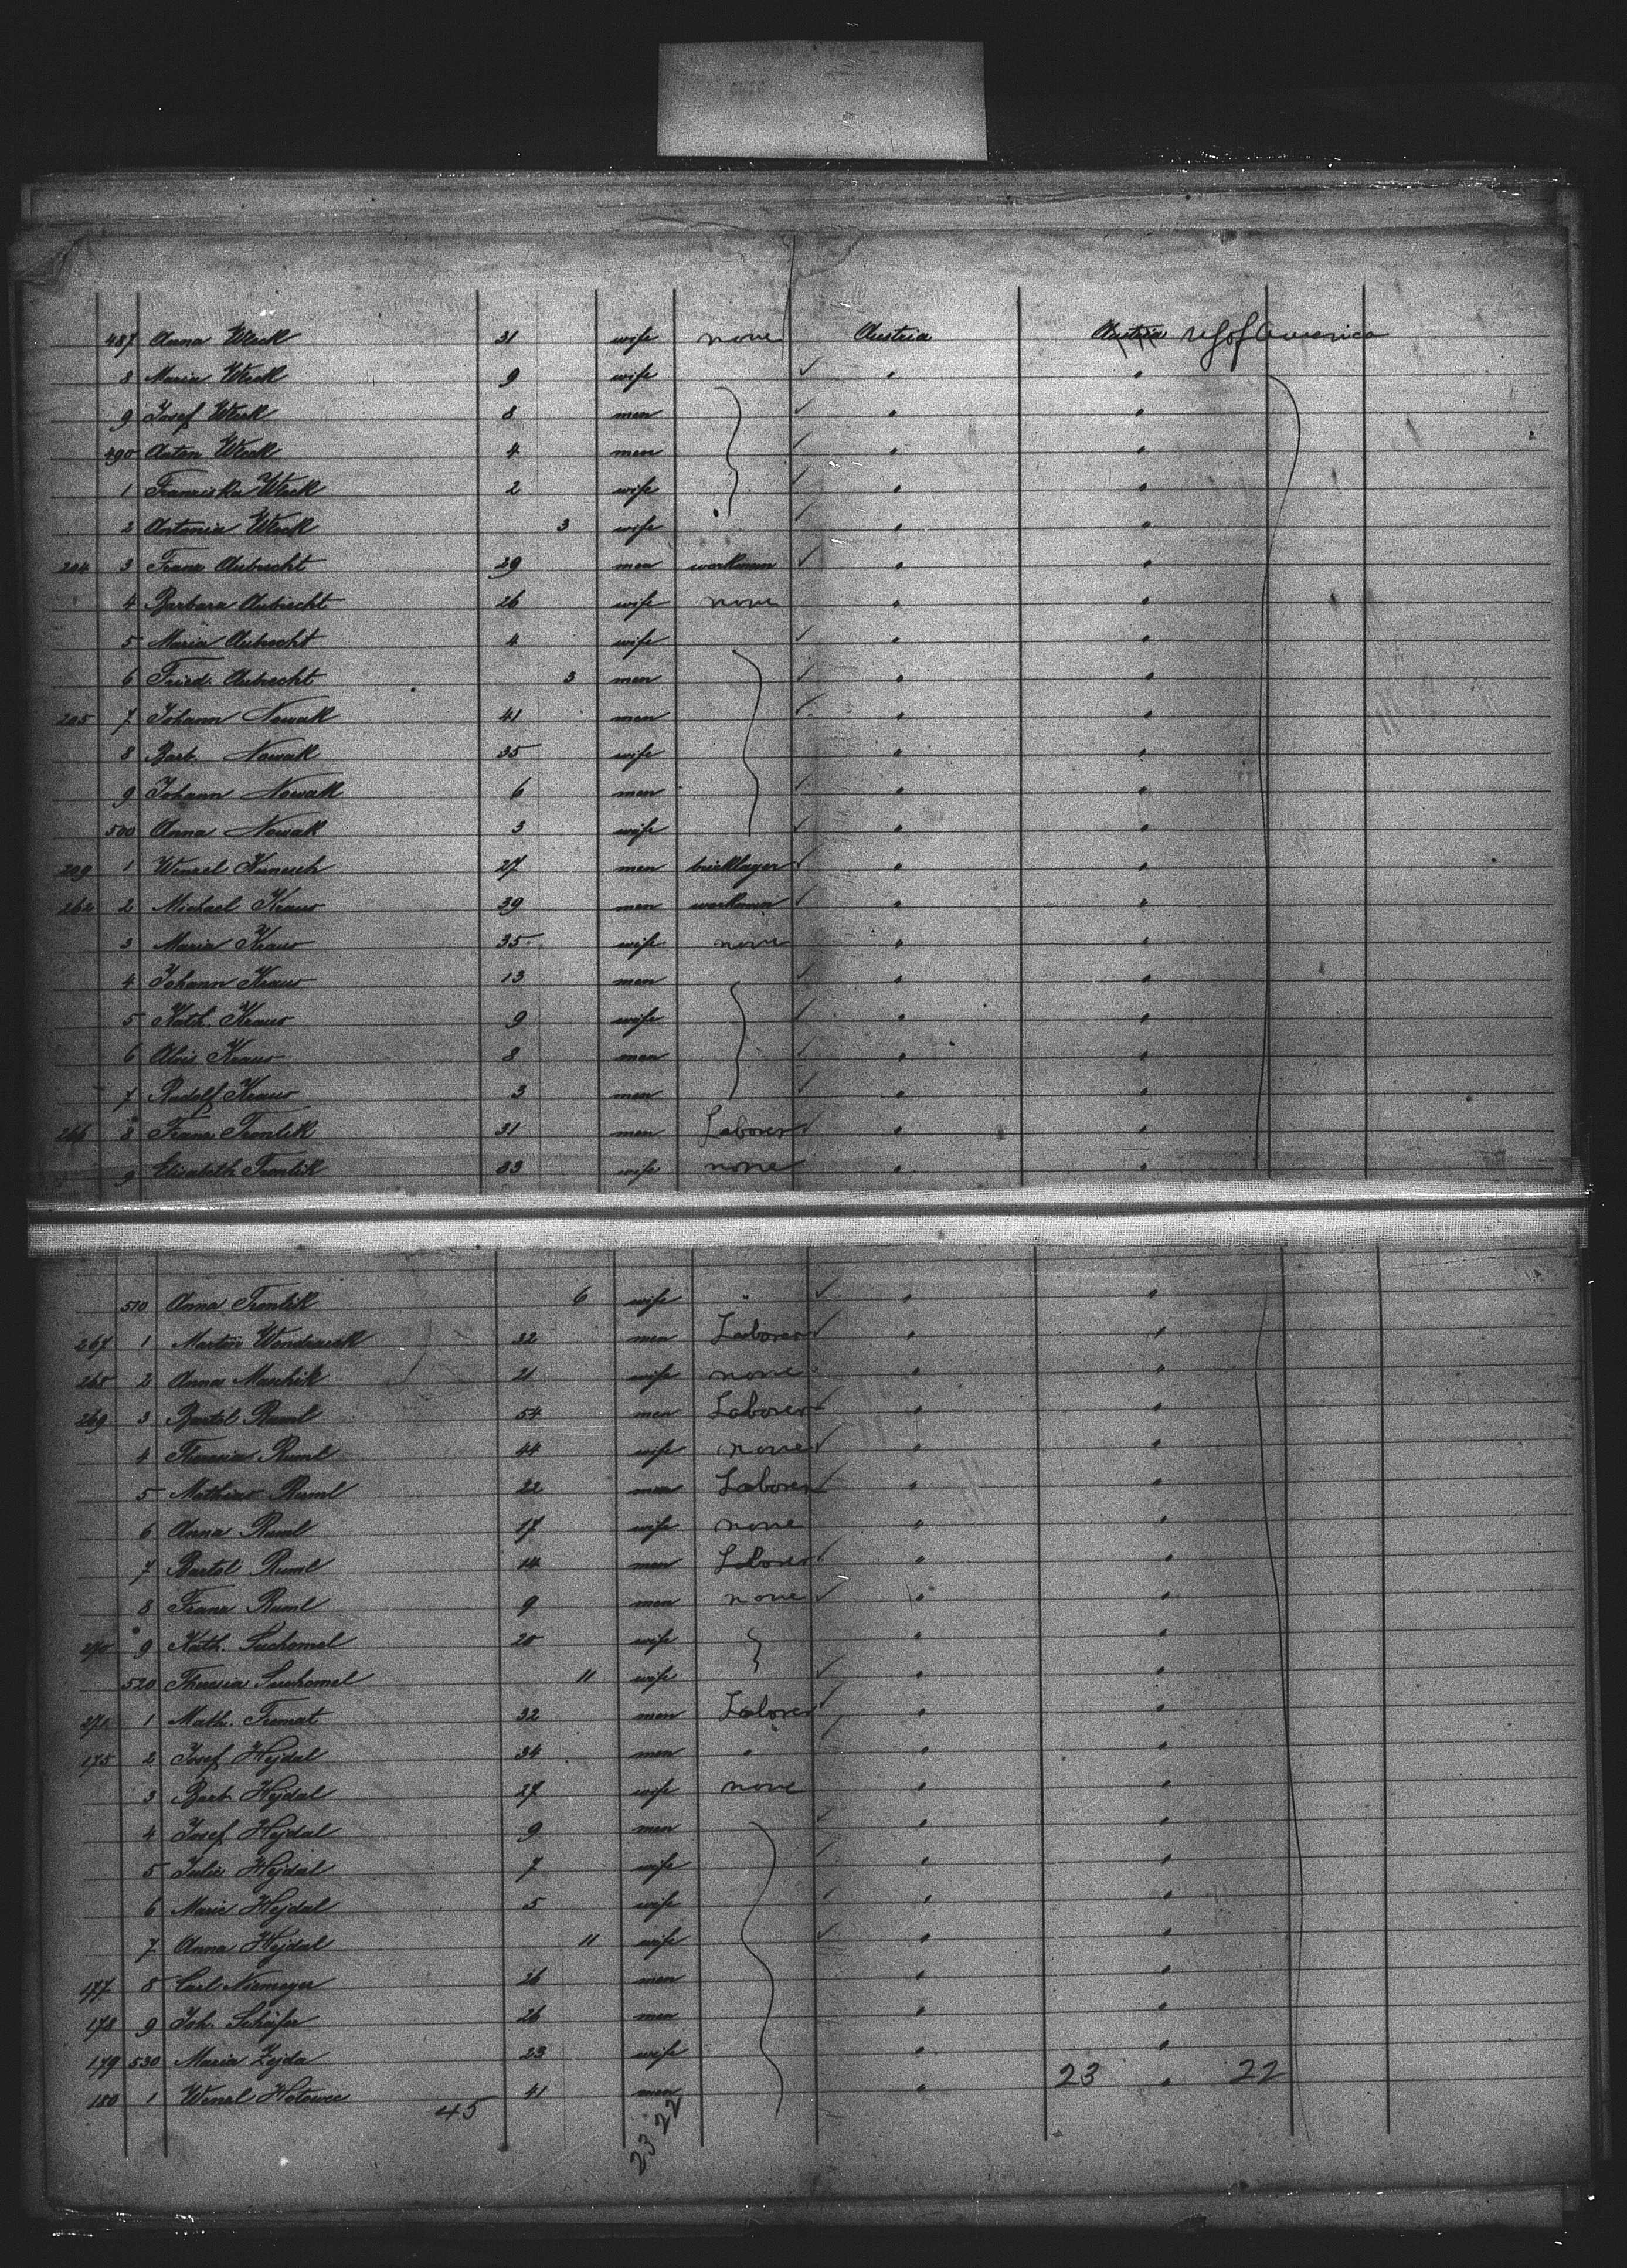 487 Anna Wlcek 31 wife none Austria Austria US of America
8 Maria Wlcek 9 wife " "
9 Josef Wlcek 8 men " "
490 Anton Wlcek 4 men " "
1 Franziska Wlcek 2 wife " "
2 Antonia Wlcek 3 wife " "
204 3 Franz Aubrecht 29 men workman " "
4 Barbara Aubrecht 26 wife none " "
5 Maria Aubrecht 4 wife " "
6 Fried. Aubrecht 3 men " "
205 7 Johann Nowak 41 men " "
8 Barb. Nowak 35 wife " "
9 Johann Nowak 6 men " "
500 Anna Nowak 3 wife " "
209 1 Wenzel 27 men bricklayer " "
262 2 Michael Kraus 39 men workman " "
3 Maria Kraus 35 wife none " "
4 Johann Kraus 13 men " "
5 Kath. Kraus 9 wife " "
6 Alois Kraus 8 men " "
7 Rudolf Kraus 3 men " "
266 8 Franz Tronlik 31 men Laborer " "
9 Elisabeth Tronlik 33 wife none " "
510 Anna Tronlik 6 wife " " "
267 1 Martin 32 men Laborer " "
268 2 Anna Maschik 21 wife none " "
269 3 Bartol Ruml 54 men Laborer " "
4 Theresia Ruml 44 wife none " "
5 Mathias Ruml 22 men Laborer " "
6 Anna Ruml 17 wife none " "
7 Bartol Ruml 14 men Laborer " "
8 Franz Ruml 9 men none " "
270 9 Kath. Suchomel 20 wife " "
520 Theresia Suchomel 11 wife " "
1 Math. 32 men Laborer " "
175 2 Josef Hejdal 34 men " " "
3 Barb. Hejdal 27 wife none " "
4 Josef Hejdal 9 men " "
5 Julie Hejdal 7 wife " "
6 Marie Hejdal 5 wife " "
7 Anna Hejdal 11 wife " "
177 8 Carl Niemeyer 26 men " "
178 9 Joh. Schäfer 26 men " "
179 530 Maria Zejda 23 wife " "
180 1 Wenzl Hotowec 41 men " 23 " 22
45 23 22